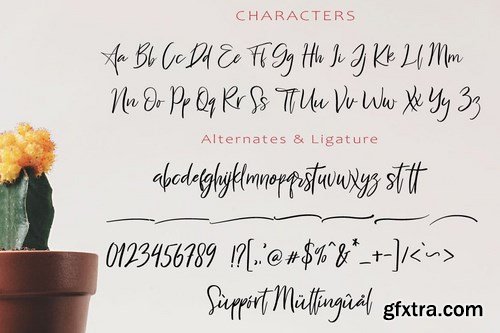 CHARACTERS
Aa Bb Cc Dd Ee Ff Gg Hh Ii Jj Kk Ll Mm
Nn Oo Pp Qq Rr Ss Tt Uu Vv Ww Xx Yy Zz
Alternates & Ligature
abcdefghijklmnopqrstuvwxyz st tt
0123456789 !?[,.'@#$%^&*_+-]/<`~>
Sùppórt Mültïngûál
gfxtra.com